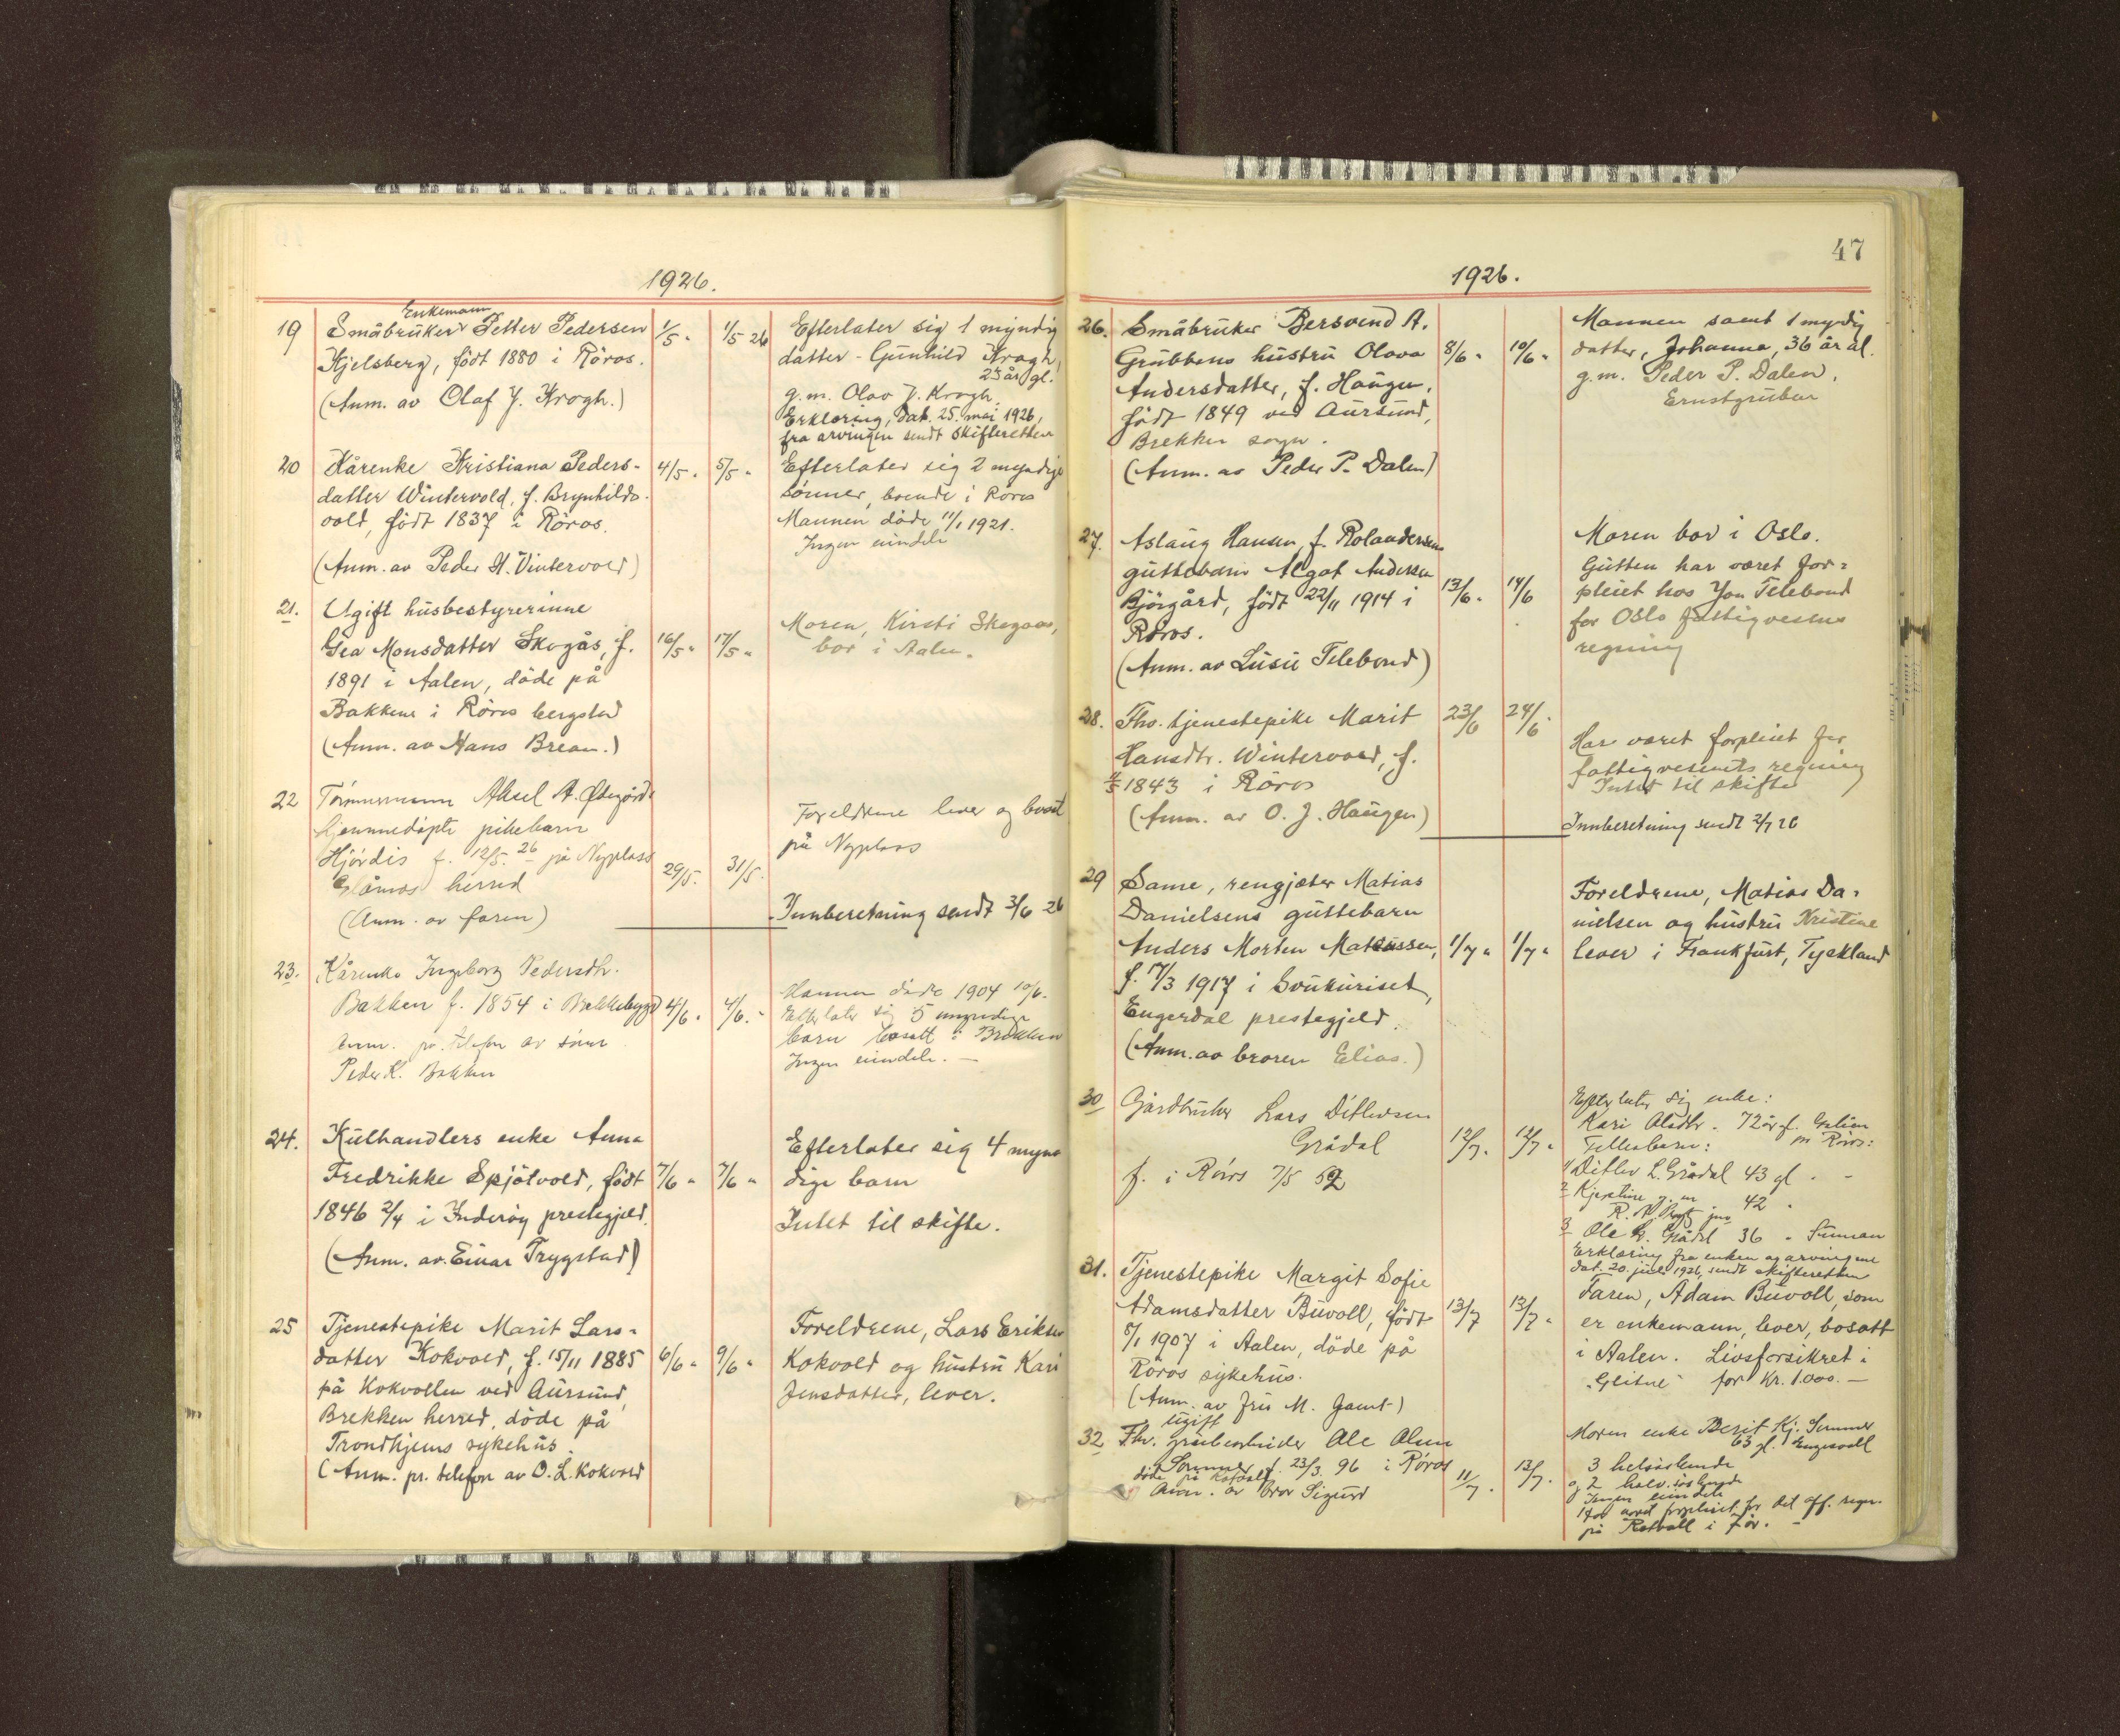 1926.
19
Enkemann
Småbruker Petter Pedersen
Kjelsberg, født 1880 i Röros.
(Anm. av Olaf J. Krogh.)
1/5 "
1/5 26
Efterlater sig 1 myndig
datter - Gunhild Krogh,
23 år gl.
g.m. Olav J. Krogh
Erklæring, dat. 25. mai 1926,
fra arvingen sendt skifteretten
20
Kårenke Kristiana Peders-
datter Wintervold, f. Brynhilds-
vold, født 1837 i Röros.
(Anm. av Peder H. Vintervold)
4/5 "
5/5 "
Efterlater sig 2 myndige
sönner, boende i Röros
Mannen döde 11/1 1921.
Ingen eiendele
21.
Ugift husbestyrerinne
Gea Monsdatter Skogås, f.
1891 i Aalen, döde på
Bakkene i Röros bergstad
(Anm. av Hans Breian.)
16/5 "
17/5 "
Moren, Kirsti Skogaas,
bor i Aalen.
22
Tömmermann Aksel A. Östegårds
hjemmedöpte pikebarn
Hjördis f. 12/5. 26 på Nyplass
Glåmos herred
(Anm. av faren)
29/5.
31/5.
Foreldrene lever og bosatt
på Nyplass
Innberetning sendt 3/6 26
23.
Kårenke Ingeborg Pedersdtr.
Bakken f. 1854 i Brekkebygd
Anm. pr. telefon av sönn
Peder K. Bakken
4/6 "
4/6. "
Mannen döde 1904 10/6.
Etterlater sig 5 myndige
barn bosatt i Brekken
Ingen eiendele. -
24.
Kulhandlers enke Anna
Fredrikke Spjötvold, födt
1846 2/4 i Inderöy prestegjeld.
(Anm. av Einar Trygstad)
7/6 "
7/6 "
Efterlater sig 4 myn-
dige barn
Intet til skifte.
25
Tjenestepike Marit Lars-
datter Kokvold, f. 15/11 1885
på Kokvollen ved Aursund,
Brekken herred, döde på
Trondhjems sykehus.
(Anm. pr. telefon av O. L. Kokvold
6/6 "
9/6 "
Foreldrene, Lars Eriksen
Kokvold og hustru Kari
Jensdatter, lever.
47
1926.
26.
Småbruker Bersvend A.
Grubbens hustru Olava
Andersdatter, f. Haugen,
födt 1849 ved Aursund,
Brekken sogn.
(Anm. av Peder P. Dalen)
8/6 "
10/6 "
Mannen samt 1 myndig
datter, Johanna, 36 år al.
g.m. Peder P. Dalen,
Ernstgruben
27.
Aslaug Hansen, f. Rolandersens
guttebarn Algot Andersen
Björgård, födt 22/11 1914 i
Röros.
(Anm. av Lusie Telebond)
13/6 "
14/6
Moren bor i Oslo.
Gutten har været for-
pleiet hos Jon Telebond
for Oslo fattigvesens
regning
28.
Fhv. tjenestepike Marit
Hansdtr. Wintervold, f.
1843 i Röros
(Anm. av O. J. Haugen)
23/6
24/6
Har været forpleiet for
fattigvesenets regning
Intet til skifte
Innberetning sendt 2/7 26
29
Same, rengjæter Matias
Danielsens guttebarn
Anders Morten Matiussen,
f. 17/3 1917 i Svukuriset,
Engerdal prestegjeld.
(Anm. av broren Elias.)
1/7 "
1/7 "
Foreldrene, Matias Da-
nielsen og hustru Kristine
lever i Frankfurt, Tyskland
30
Gårdbruker Lars Ditlevsen
Grådal
f. i Röros 7/5 52
12/7.
12/7 "
Efterlater sig enke:
Kari Olsdtr. 72 år f.
Fellesbarn:
1 Ditlev L. Grådal 43 gl. -
2 Kjerstine g. m. 42 "
3 Ole L. Grådal 36 "
Erklæring fra enken og arvingene
dat. 20. juli 1926, sendt skifteretten
31.
Tjenestepike Margit Sofie
Adamsdatter Buvoll, födt
5/1 1907 i Aalen, döde på
Röros sykehus.
(Anm. av frü M. Gamt)
13/7
13/7 "
Faren, Adam Buvoll, som
er enkemann, lever, bosatt
i Aalen. Livsforsikret i
"Glitne" for Kr. 1.000. -
32
ugift
Fhv. grubearbeider Ole Olsen
Sommer f. 23/3. 96 i Röros
döde på Rotvoll
Anm. av bror Sigurd
11/7.
13/7.
Moren enke Berit Kj. Sommer
63 gl. Engesvoll
3 helsöskende
og 2 halvsöskende
Ingen eiendele
forpleiet for det off. regn.
på Rotvoll i 7 år. -